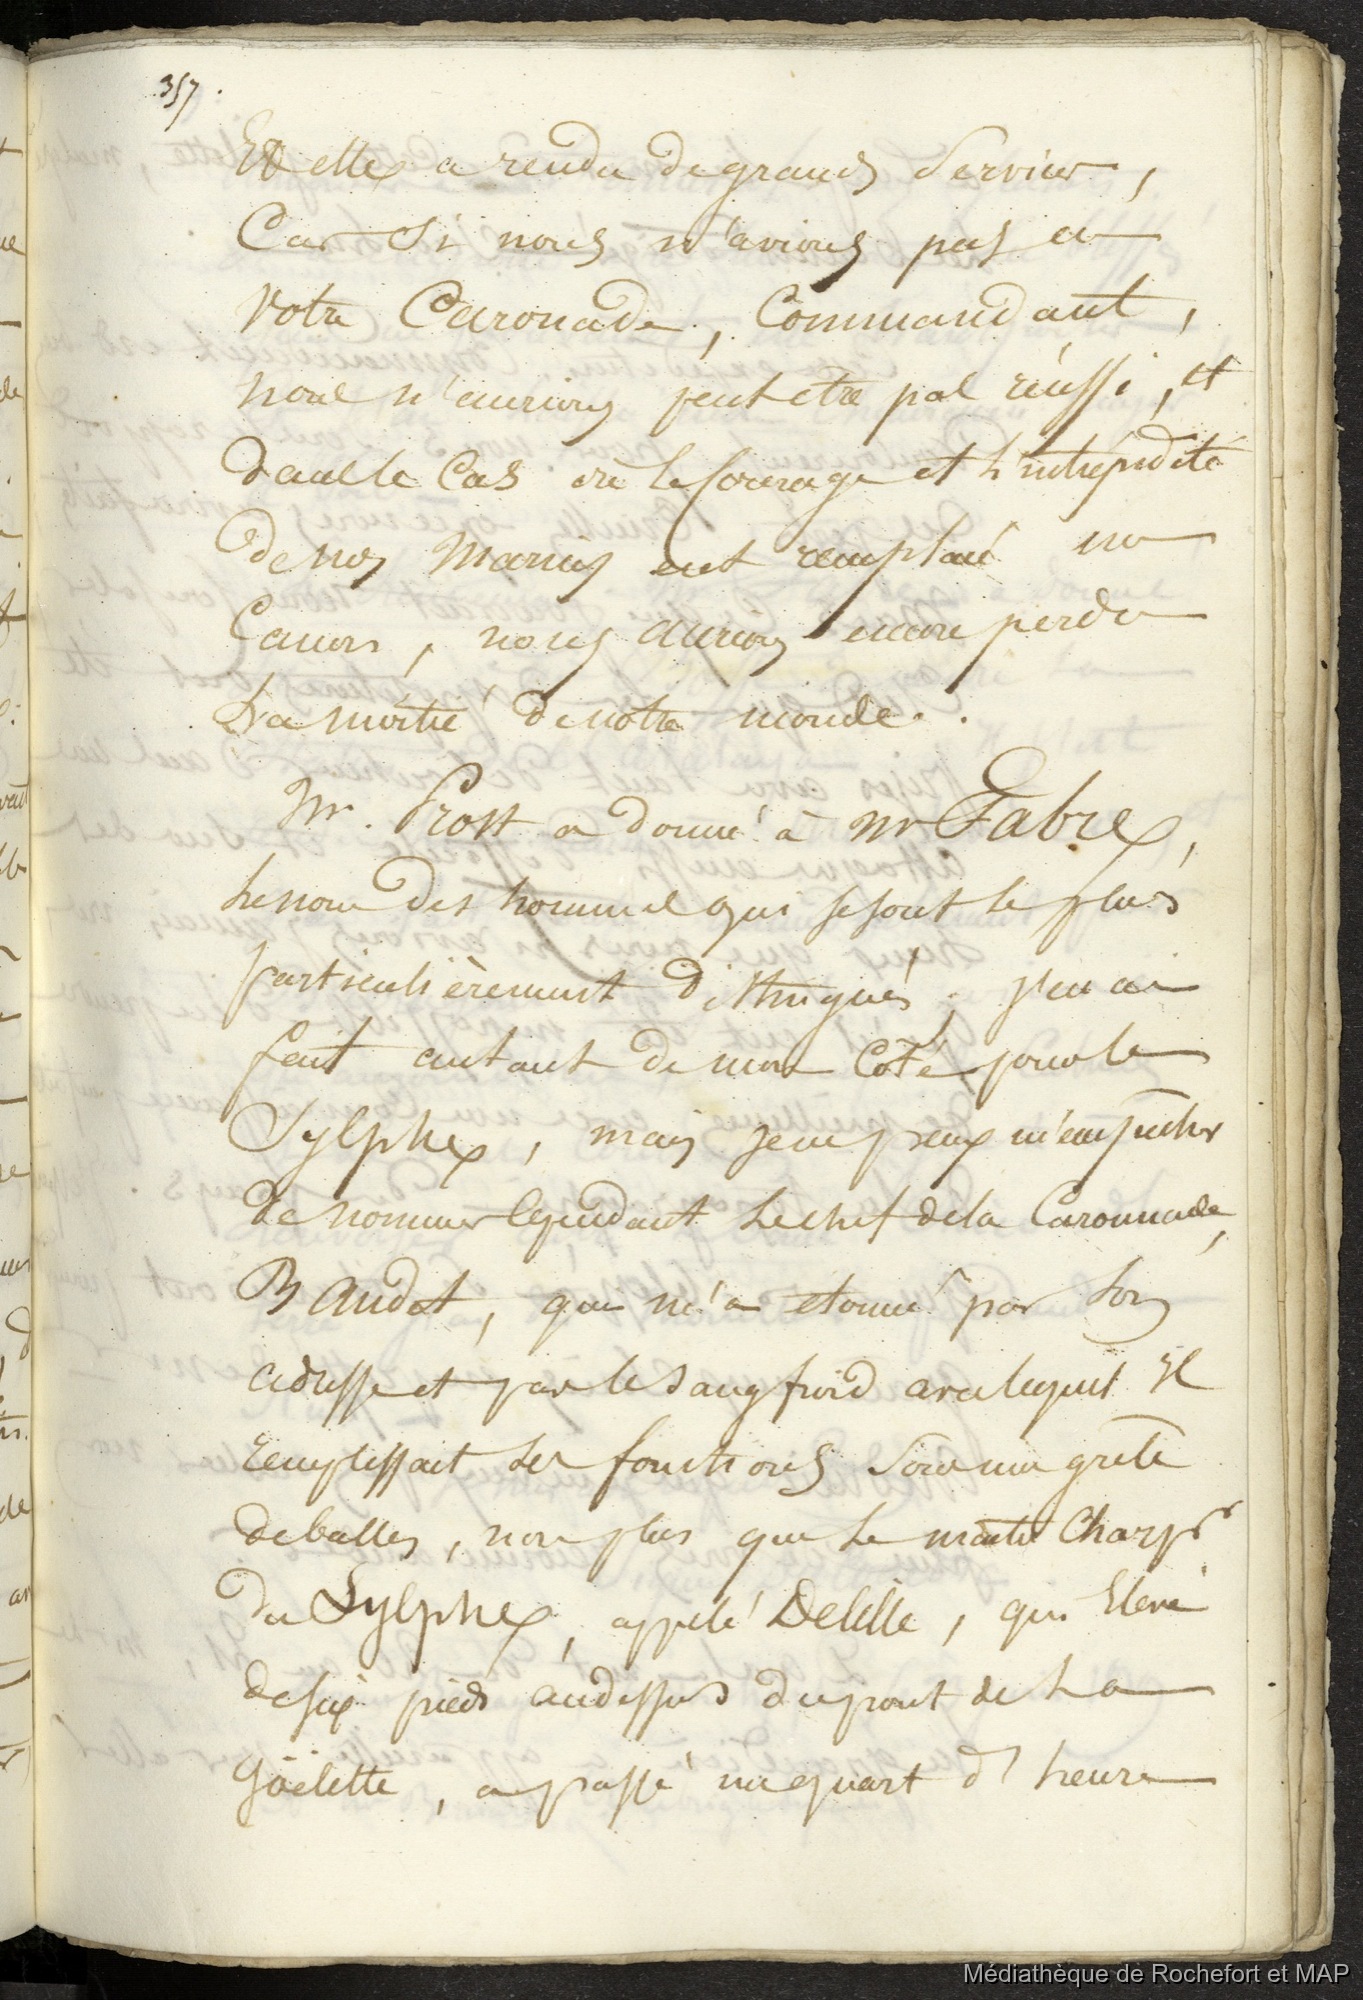 357.
Et elle a rendu de grands Services,
Car Si nous n'avions pas eu
Votre Caronade, Commandant,
nous n'aurions peut etre pas réussi, et
dans le Cas où le Courage et l'intrépidité
de nos Marins eut remplacé un
Canon, nous aurions encore perdu
La moitié de notre monde.
Mr. Prost a donné à Mr Fabre,
le nom des hommes qui se sont le plus
particulièrement distingués, j'en ai
fait autant de mon Côté pour le
Sylphe, mais je ne peux m'empecher
de nommer Cependant le chef de la Caronnade,
Baudet, qui m'a etonné par son
adresse et par le Sang froid avec lequel il
remplissait ses fonctions Sous une grêle
de balles, non plus que le maitre Charpr
du Sylphe, appelé Delille, qui Elevé
de six pieds audessus du pont de La
Goëlette, a passé un quart d'heure
Médiathèque de Rochefort et MAP